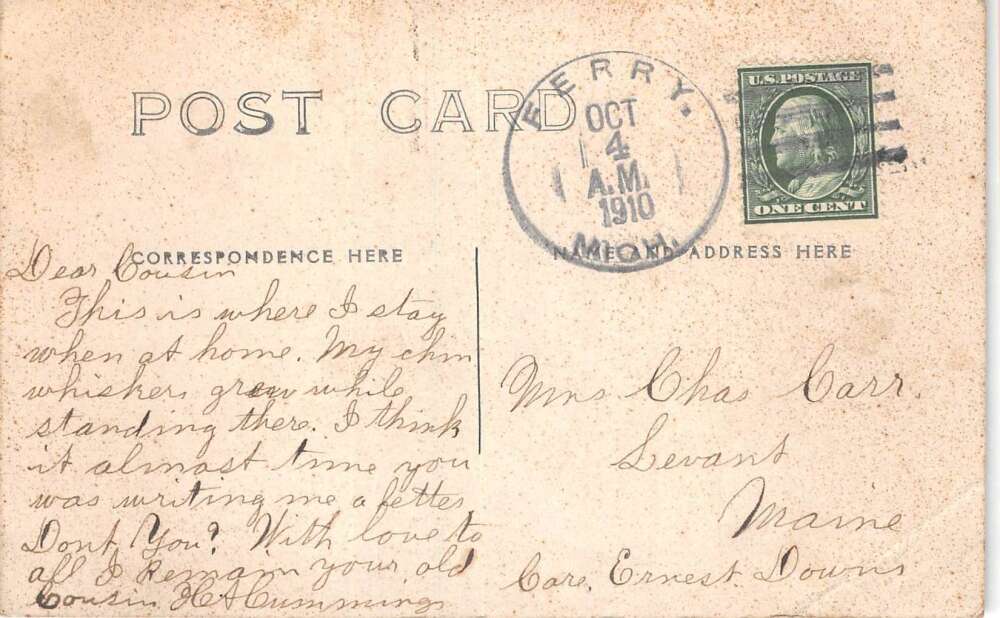 POST CARD
FERRY.
OCT
4
A.M.
1910
MICH.
U.S. POSTAGE
ONE CENT
CORRESPONDENCE HERE
NAME AND ADDRESS HERE
Dear Cousin
This is where I stay
when at home. My chin
whiskers grew while
standing there. I think
it almost time you
was writing me a letter
Dont You? With love to
all I Remain your old
Cousin H A Cummings
Mrs Chas Carr.
Levant
Maine
Care, Ernest Downs